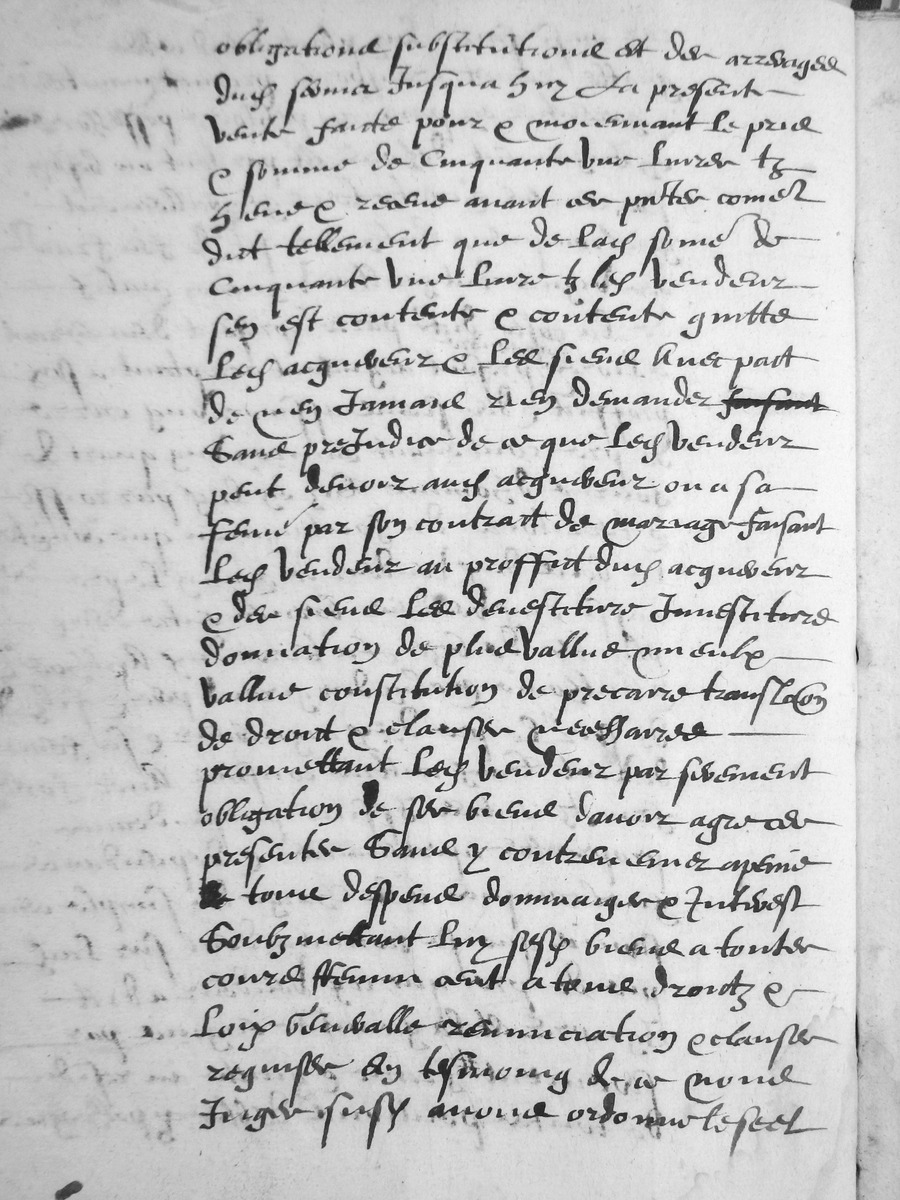 obligations substitutions et des arrerages
dud servis Jusqua huy La presente
vente faicte pour & moiennant le pris
& somme de Cinquante une livres tz
heue & receue avant ces pntes come
dict tellement que de lad some de
Cinquante une livre tz led vendeur
sen est contente & contente quitte
led acquereur & les siens Avec pact
de nen Jamais rien demander faisant
Sans preJudice de ce que led vendeur
peut devoir aud acquereur ou a sa
feme par son contract de mariage faisant
led vendeur au proffict dud acquereur
& des siens les devestiture Jnvestiture
donnation de plus vallue mieulx
vallue constitution de precaire translaon
de droict & clauses necessaires
promettant led vendeur par serement
obligation de ses biens davoir agre ces
presentes Sans y contrevenir apeine
de tous despens dommaiges & Jnterest
Soubzmettant luy sesd biens a toutes
cours a tous droictz &
loix genералle renunciation & clauses
requises En tesmoing de ce nous
Juge susd avons ordonne le seel